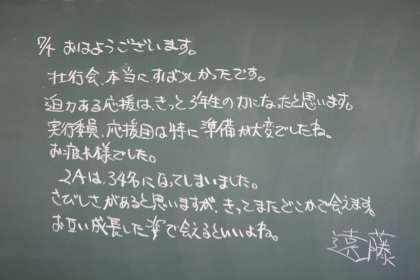 7/1 おはようございます。
壮行会、本当にすばらしかったです。
迫力ある応援は、きっと3年生の力になったと思います。
実行委員、応援団は特に準備が大変でしたね。
お疲れ様でした。
2Aは、34名になってしまいました。
さびしさがあると思いますが、きってまたどこかで会えます。
お互い成長した姿で会えるといいよね。
遠藤